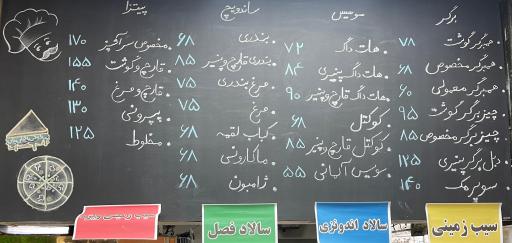 برگر
همبرگر گوشت ۷۸
همبرگر مخصوص ۶۸
همبرگر معمولی ۶۰
چیزبرگر گوشت ۹۵
چیزبرگر مخصوص ۸۵
دبل برگر پنیری ۱۲۵
سوپر مک ۱۴۰
سوسیس
هات داگ ۷۲
هات داگ پنیری ۸۴
هات داگ قارچ و پنیر ۹۰
کوکتل ۶۸
کوکتل قارچ و پنیر ۸۵
سوسیس آلمانی ۵۵
ساندویچ
بندری ۶۸
بندری قارچ و پنیر ۸۵
مرغ بندری ۷۵
مرغ ۷۵
کباب لقمه ۶۸
ماکارونی ۶۸
ژامبون ۶۸
پیتزا
مخصوص سرآشپز ۱۷۰
قارچ و گوشت ۱۵۵
قارچ و مرغ ۱۴۰
پپرونی ۱۳۰
مخلوط ۱۲۵
سیب زمینی
سالاد اندونزی
سالاد فصل
سیب زمینی